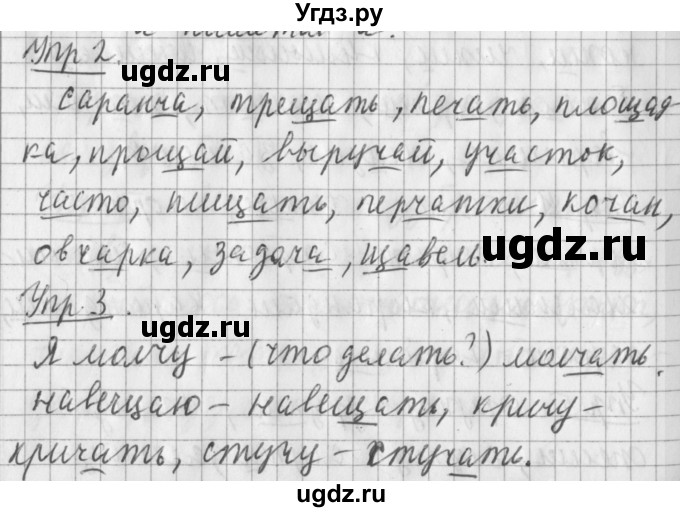 Угдз.ру
а.
Упр 2.
ugdz.ru
саранча, трещать, печать, площад-
ка, прощай, выручай, участок,
часто, пищать, перчатки, кочан,
ugdz.ru
овчарка, задача, щавель.
Упр. 3.
ugdz.ru
Я молчу – (что делать?) молчать.
навещаю – навещать, кричу –
кричать, стучу – стучать.
ugdz.ru
ugdz.ru